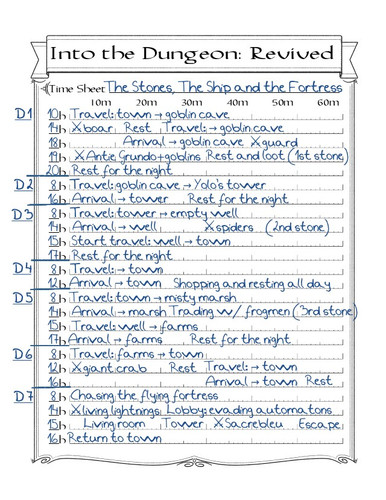 Into the Dungeon: Revived
Time Sheet The Stones, The Ship and the Fortress
10m 20m 30m 40m 50m 60m
D1 10h Travel: town → goblin cave
14h X boar Rest Travel: → goblin cave
18h Arrival → goblin cave X guard
19h X Antic Grundo+goblins Rest and loot (1st stone)
20h Rest for the night
D2 8h Travel: goblin cave → Yolo's tower
16h Arrival → tower Rest for the night
D3 8h Travel: tower → empty well
14h Arrival → well X spiders (2nd stone)
15h Start travel: well → town
17h Rest for the night
D4 8h Travel: → town
12h Arrival → town Shopping and resting all day
D5 8h Travel: town → misty marsh
14h Arrival → marsh Trading w/ frogmen (3rd stone)
15h Travel: well → farms
17h Arrival → farms Rest for the night
D6 8h Travel: farms → town
12h X giant crab Rest Travel: → town
16h Arrival → town Rest
D7 8h Chasing the flying fortress
14h X living lightnings Lobby: evading automatons
15h Living room Tower X Sacrebleu Escape
16h Return to town